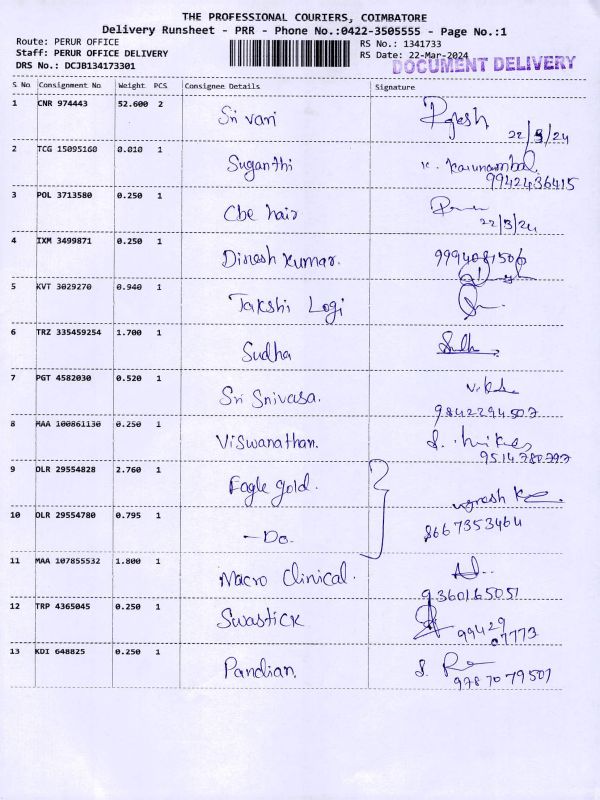 THE PROFESSIONAL COURIERS, COIMBATORE
Delivery Runsheet - PRR - Phone No.:0422-3505555 - Page No.:1
Route: PERUR OFFICE RS No.: 1341733
Staff: PERUR OFFICE DELIVERY RS Date: 22-Mar-2024
DRS No.: DCJB134173301 DOCUMENT DELIVERY
S No Consignment No Weight PCS Consignee Details Signature
1 CNR 974443 52.600 2 Sri vari Rajesh
22/3/24
2 TCG 15095160 0.010 1 Suganthi K. Karunambal
9942436415
3 POL 3713580 0.250 1 Cbe hair
22/3/24
4 IXM 3499871 0.250 1 Dinesh kumar. 9994081506
5 KVT 3029270 0.940 1 Takshi Logi
6 TRZ 335459254 1.700 1 Sudha
7 PGT 4582030 0.520 1 Sri Srivasa.
9842294507
8 MAA 100861130 0.250 1 Viswanathan.
9514780797
9 DLR 29554828 2.760 1 Eagle gold.
10 DLR 29554780 0.795 1 -Do. 8667353464
11 MAA 107855532 1.800 1 Macro Clinical.
9360165051
12 TRP 4365045 0.250 1 Swastick 99429
07773
13 KDI 648825 0.250 1 Pandian.
9787079507